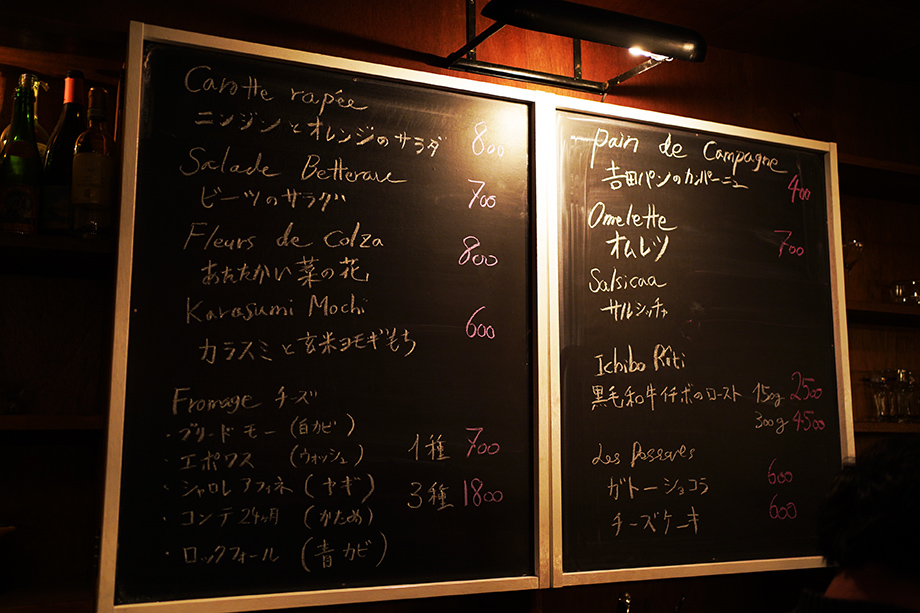 Carotte rapée
ニンジンとオレンジのサラダ 800
Salade Betterave
ビーツのサラダ 700
Fleurs de Colza 800
あたたかい菜の花
Karasumi Mochi 600
カラスミと玄米ヨモギもち
Fromage チーズ
・ブリードモー (白カビ)
・エポワス (ウォッシュ) 1種 700
・シャロレアフィネ (ヤギ) 3種 1800
・コンテ 24ヶ月 (かため)
・ロックフォール (青カビ)
Pain de Campagne
吉田パンのカンパーニュ 400
Omelette
オムレツ 700
Salsicaa
サルシッチャ
Ichibo Rôti
黒毛和牛イチボのロースト 150g 2500
300g 4500
Les
ガトーショコラ 600
チーズケーキ 600